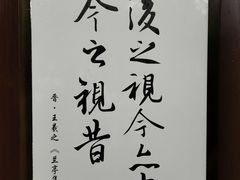 後之視今亦
今之視昔
晋·王羲之《兰亭